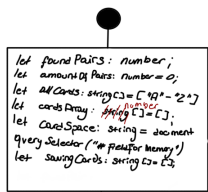 let foundPairs: number;
let amountOfPairs: number = 0;
let allCards: string[] = ["A" - "Z"]
let cardsArray: number[] = [];
let CardSpace: string = document
querySelector("# fieldforMemory")
let savingCards: string[] = [];